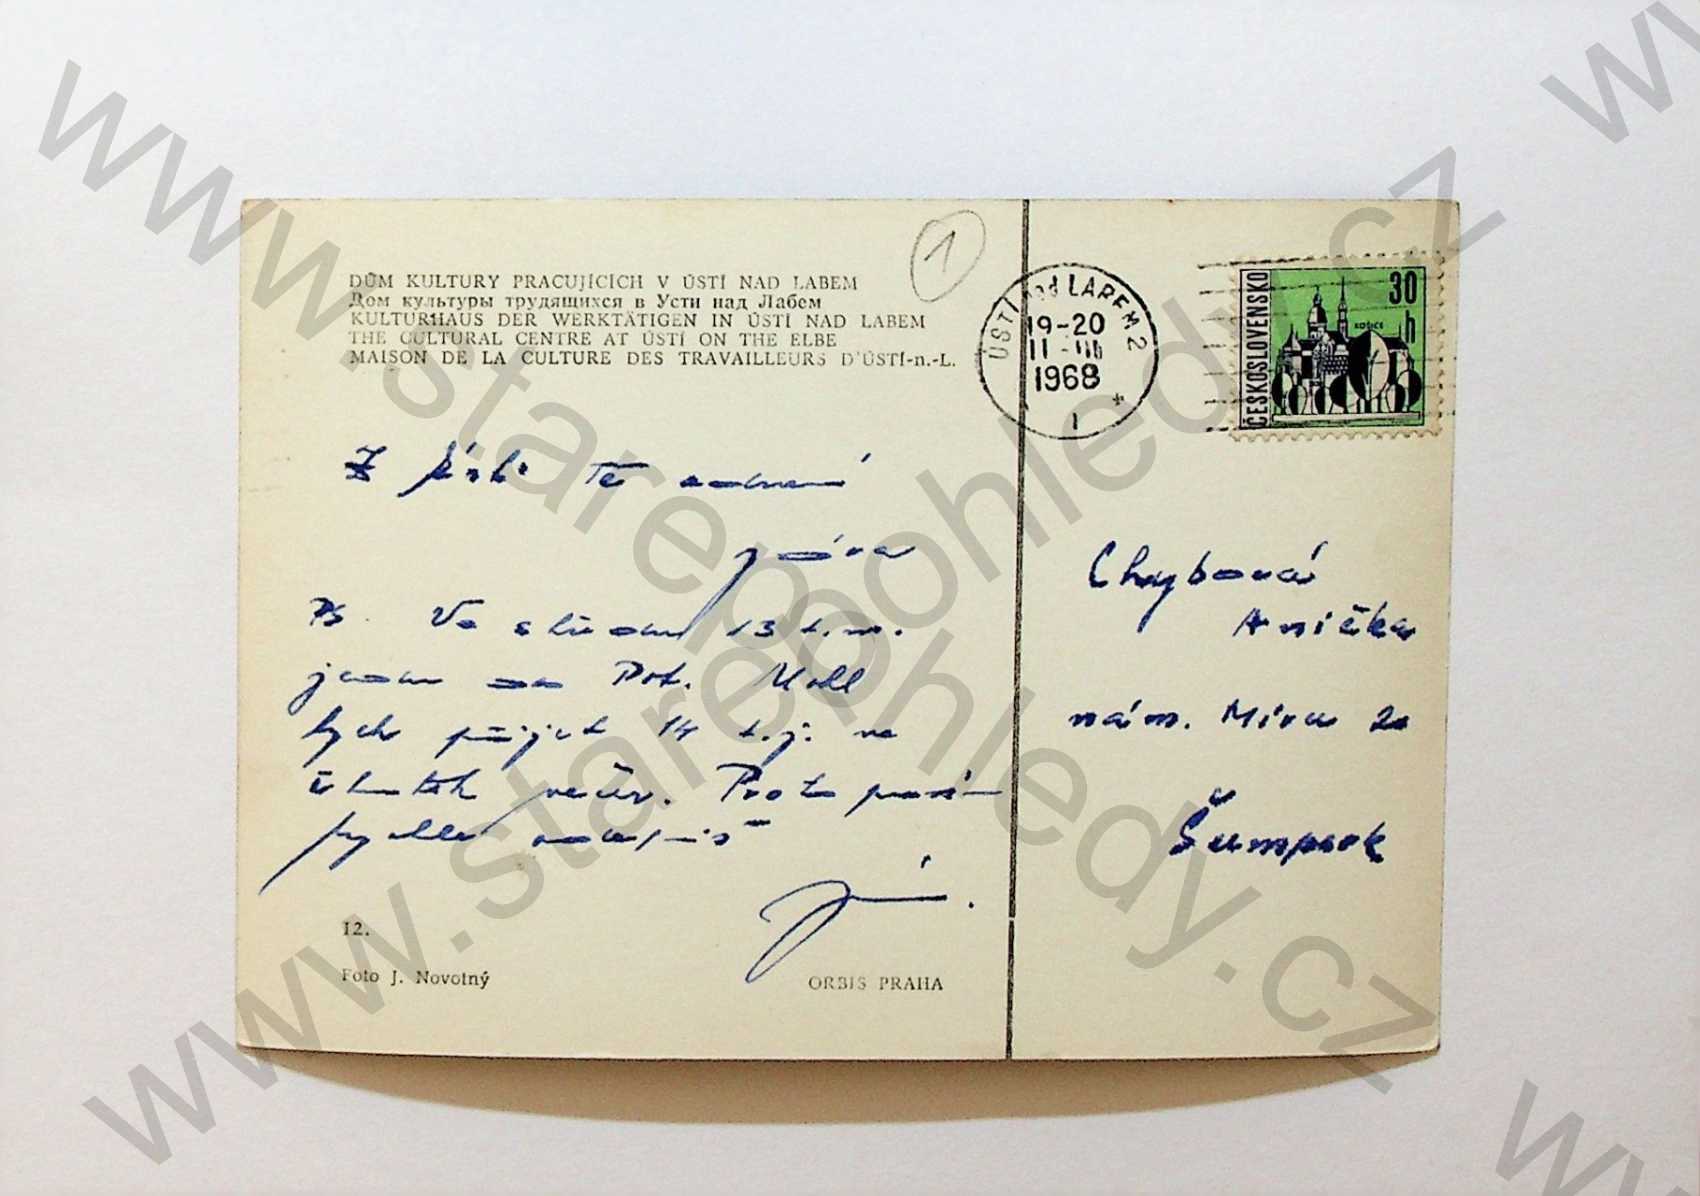 DŮM KULTURY PRACUJÍCICH V ÚSTÍ NAD LABEM
Дом культуры трудящихся в Усти над Лабем
KULTURHAUS DER WERKTÄTIGEN IN ÚSTÍ NAD LABEM
THE CULTURAL CENTRE AT ÚSTÍ ON THE ELBE
MAISON DE LA CULTURE DES TRAVAILLEURS D'ÚSTÍ-n.-L.
1
ÚSTÍ nad LABEM 2
19-20
11-III
1968
1
ČESKOSLOVENSKO
30 h
KOŠICE
Z Ústí Tě
Jára
PS. Ve středu 13 t.m.
na Pot.
bych přijet 14 t.j. ve
čtvrtek večer. Proto
rychle
Chybová
Anička
nám. Míru 20
Šumperk
12.
Foto J. Novotný
ORBIS PRAHA
www.starepohledy.cz
www.starepohledy.cz